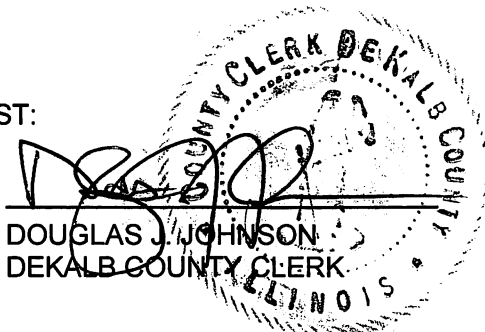 ST:
DOUGLAS J. JOHNSON
DEKALB COUNTY CLERK
COUNTY CLERK DEKALB COUNTY
ILLINOIS